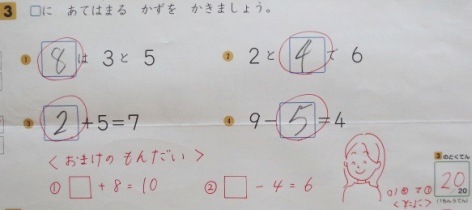 3 □に あてはまる かずを かきましょう。
① 8は 3と 5
② 2と 4で 6
③ 2+5=7
④ 9-5=4
<おまけの もんだい>
① □ + 8 = 10
② □ - 4 = 6
3のとくてん
20
20